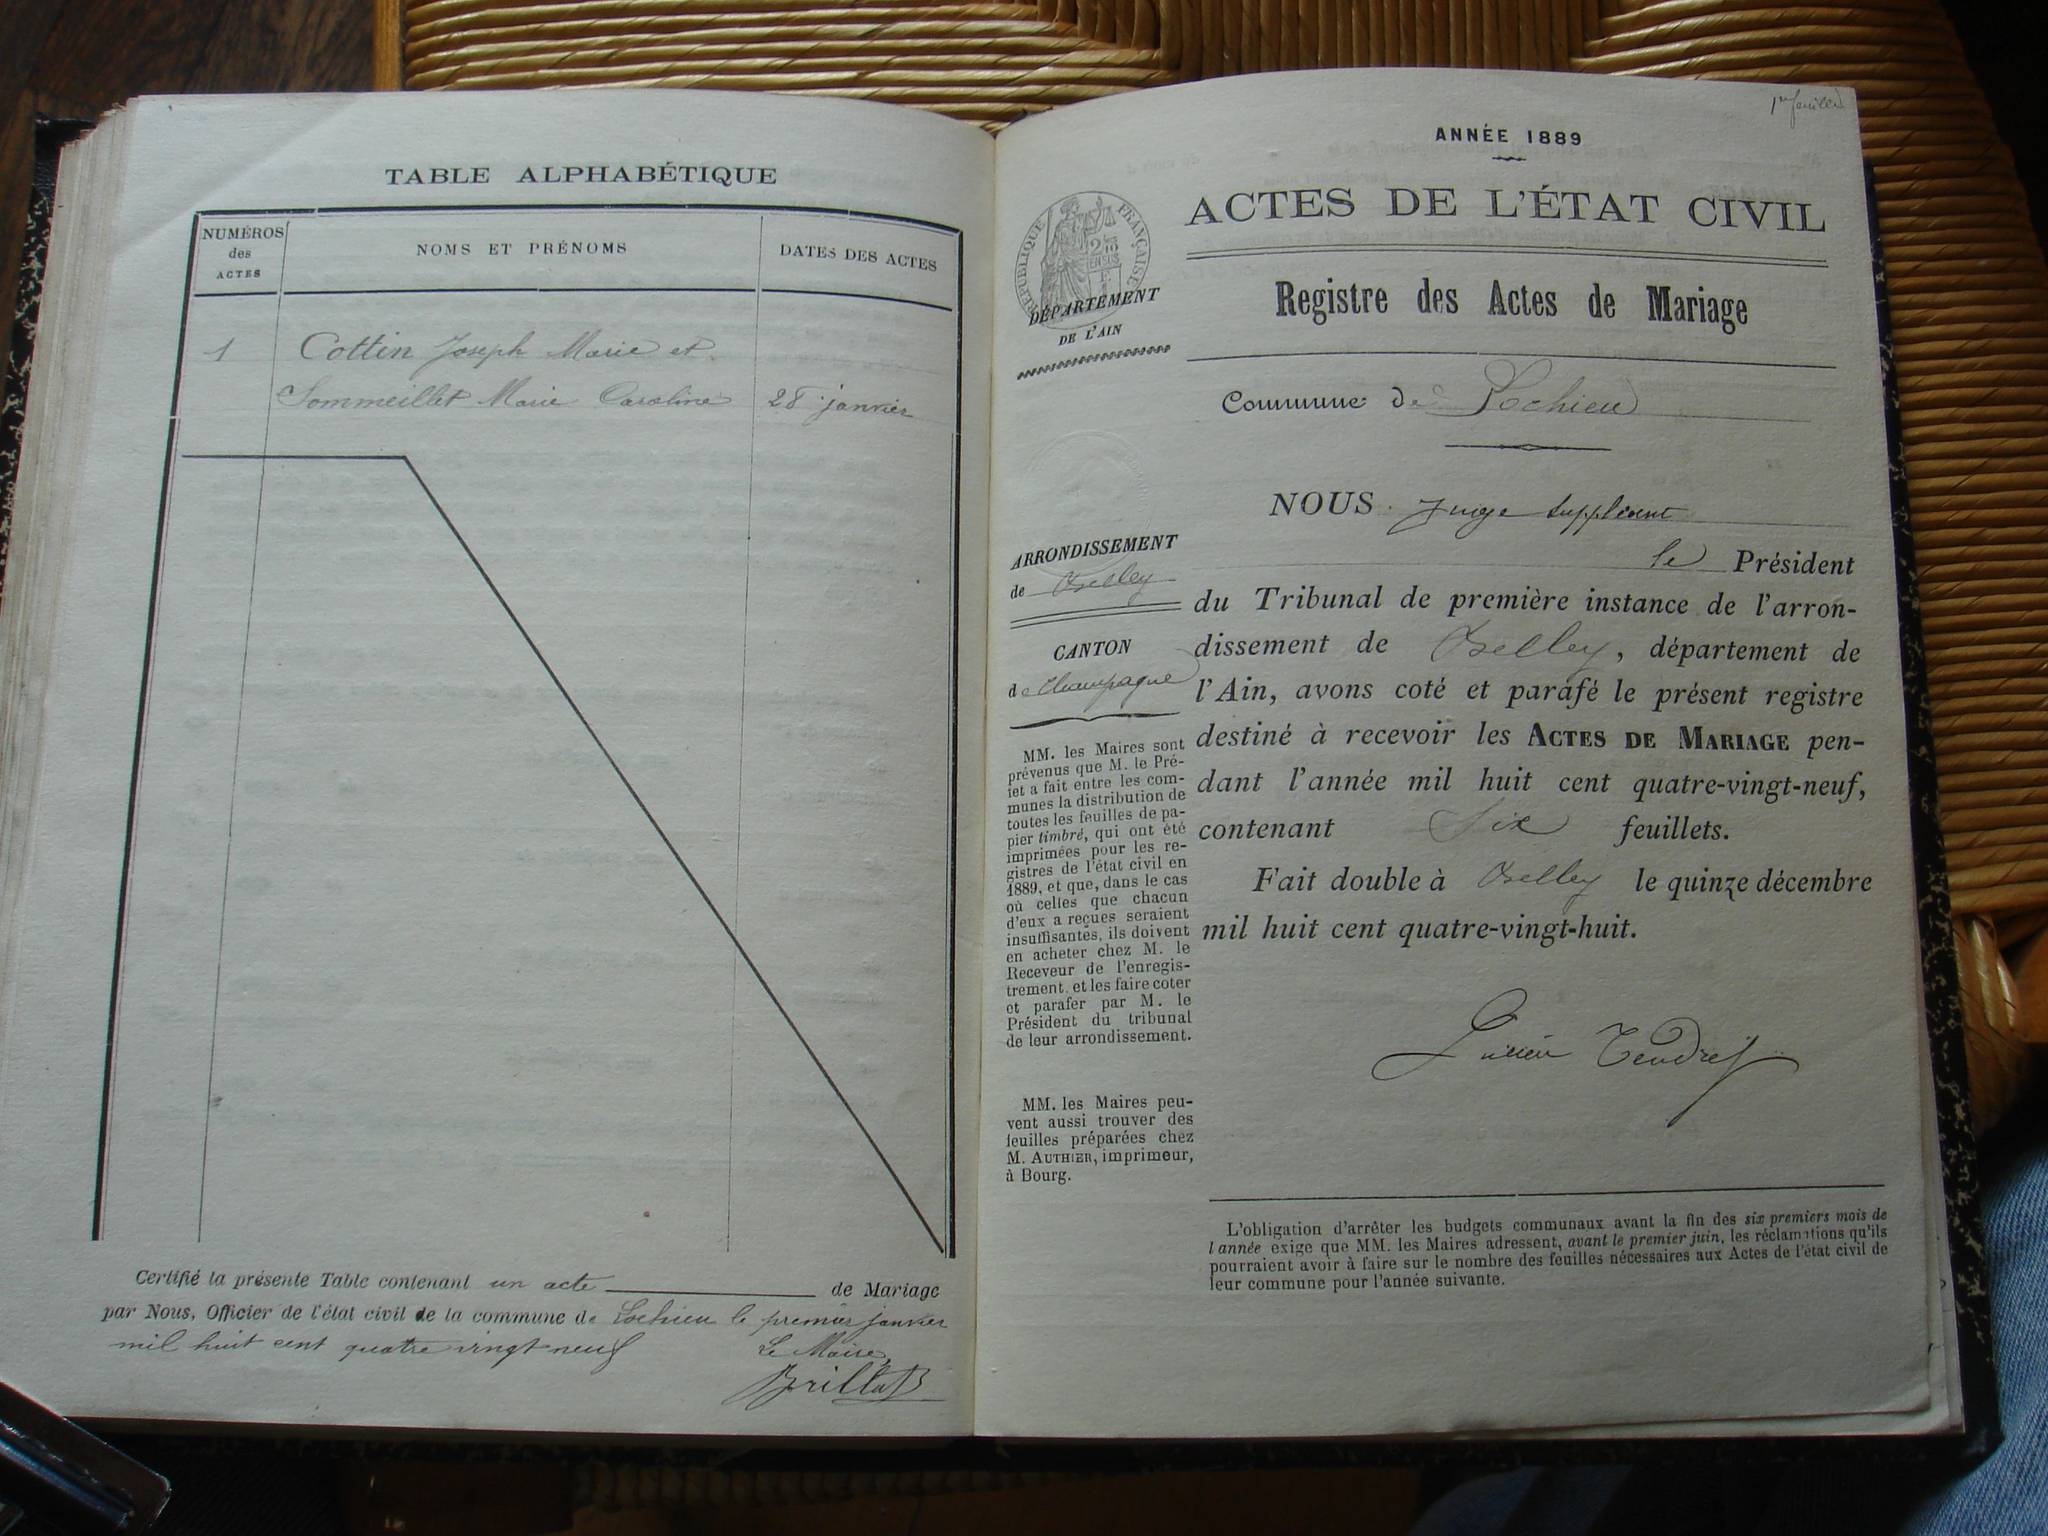 TABLE ALPHABÉTIQUE
NUMÉROS
des
ACTES
NOMS ET PRÉNOMS
DATES DES ACTES
1 Cottin Joseph Marie et
Sommeillet Marie Caroline 28 janvier
Certifié la présente Table contenant un acte de Mariage
par Nous, Officier de l'état civil de la commune de Lochieu le premier janvier
mil huit cent quatre vingt neuf
Le Maire,
Brillat
1er feuillet
ANNÉE 1889
ACTES DE L'ÉTAT CIVIL
Registre des Actes de Mariage
RÉPUBLIQUE FRANÇAISE
DÉPARTEMENT
DE L'AIN
Commune de Lochieu
ARRONDISSEMENT
de Belley
CANTON
de Champagne
MM. les Maires sont
prévenus que M. le Pré-
fet a fait entre les com-
munes la distribution de
toutes les feuilles de pa-
pier timbré, qui ont été
imprimées pour les re-
gistres de l'état civil en
1889, et que, dans le cas
où celles que chacun
d'eux a reçues seraient
insuffisantes, ils doivent
en acheter chez M. le
Receveur de l'enregis-
trement. et les faire coter
et parafer par M. le
Président du tribunal
de leur arrondissement.
MM. les Maires peu-
vent aussi trouver des
feuilles préparées chez
M. AUTHIER, imprimeur,
à Bourg.
NOUS Juge suppléant
le Président
du Tribunal de première instance de l'arron-
dissement de Belley, département de
l'Ain, avons coté et parafé le présent registre
destiné à recevoir les ACTES DE MARIAGE pen-
dant l'année mil huit cent quatre-vingt-neuf,
contenant Six feuillets.
Fait double à Belley le quinze décembre
mil huit cent quatre-vingt-huit.
Lucien Tendret
L'obligation d'arrêter les budgets communaux avant la fin des six premiers mois de
l'année exige que MM. les Maires adressent, avant le premier juin, les réclamations qu'ils
pourraient avoir à faire sur le nombre des feuilles nécessaires aux Actes de l'état civil de
leur commune pour l'année suivante.